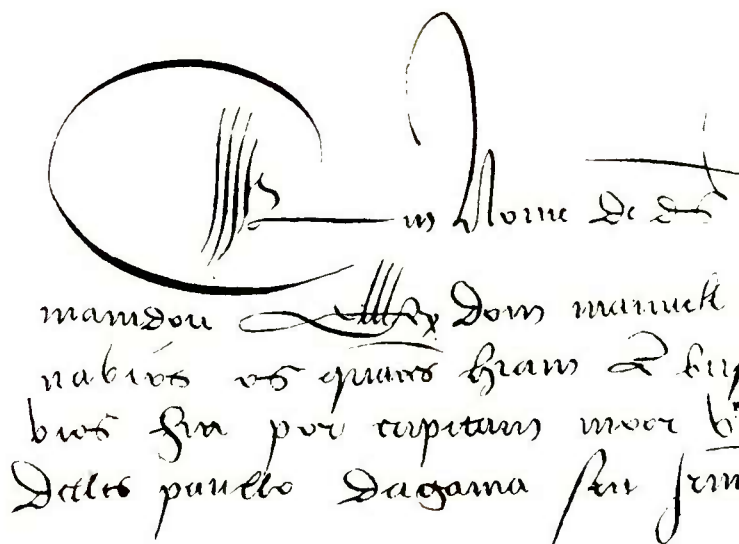 Em Nome de ds
mamdou ellRey dom manuell
nabios os quaees hiam em bus
bios hia por capitam moor
delles paullo dagama seu jrm